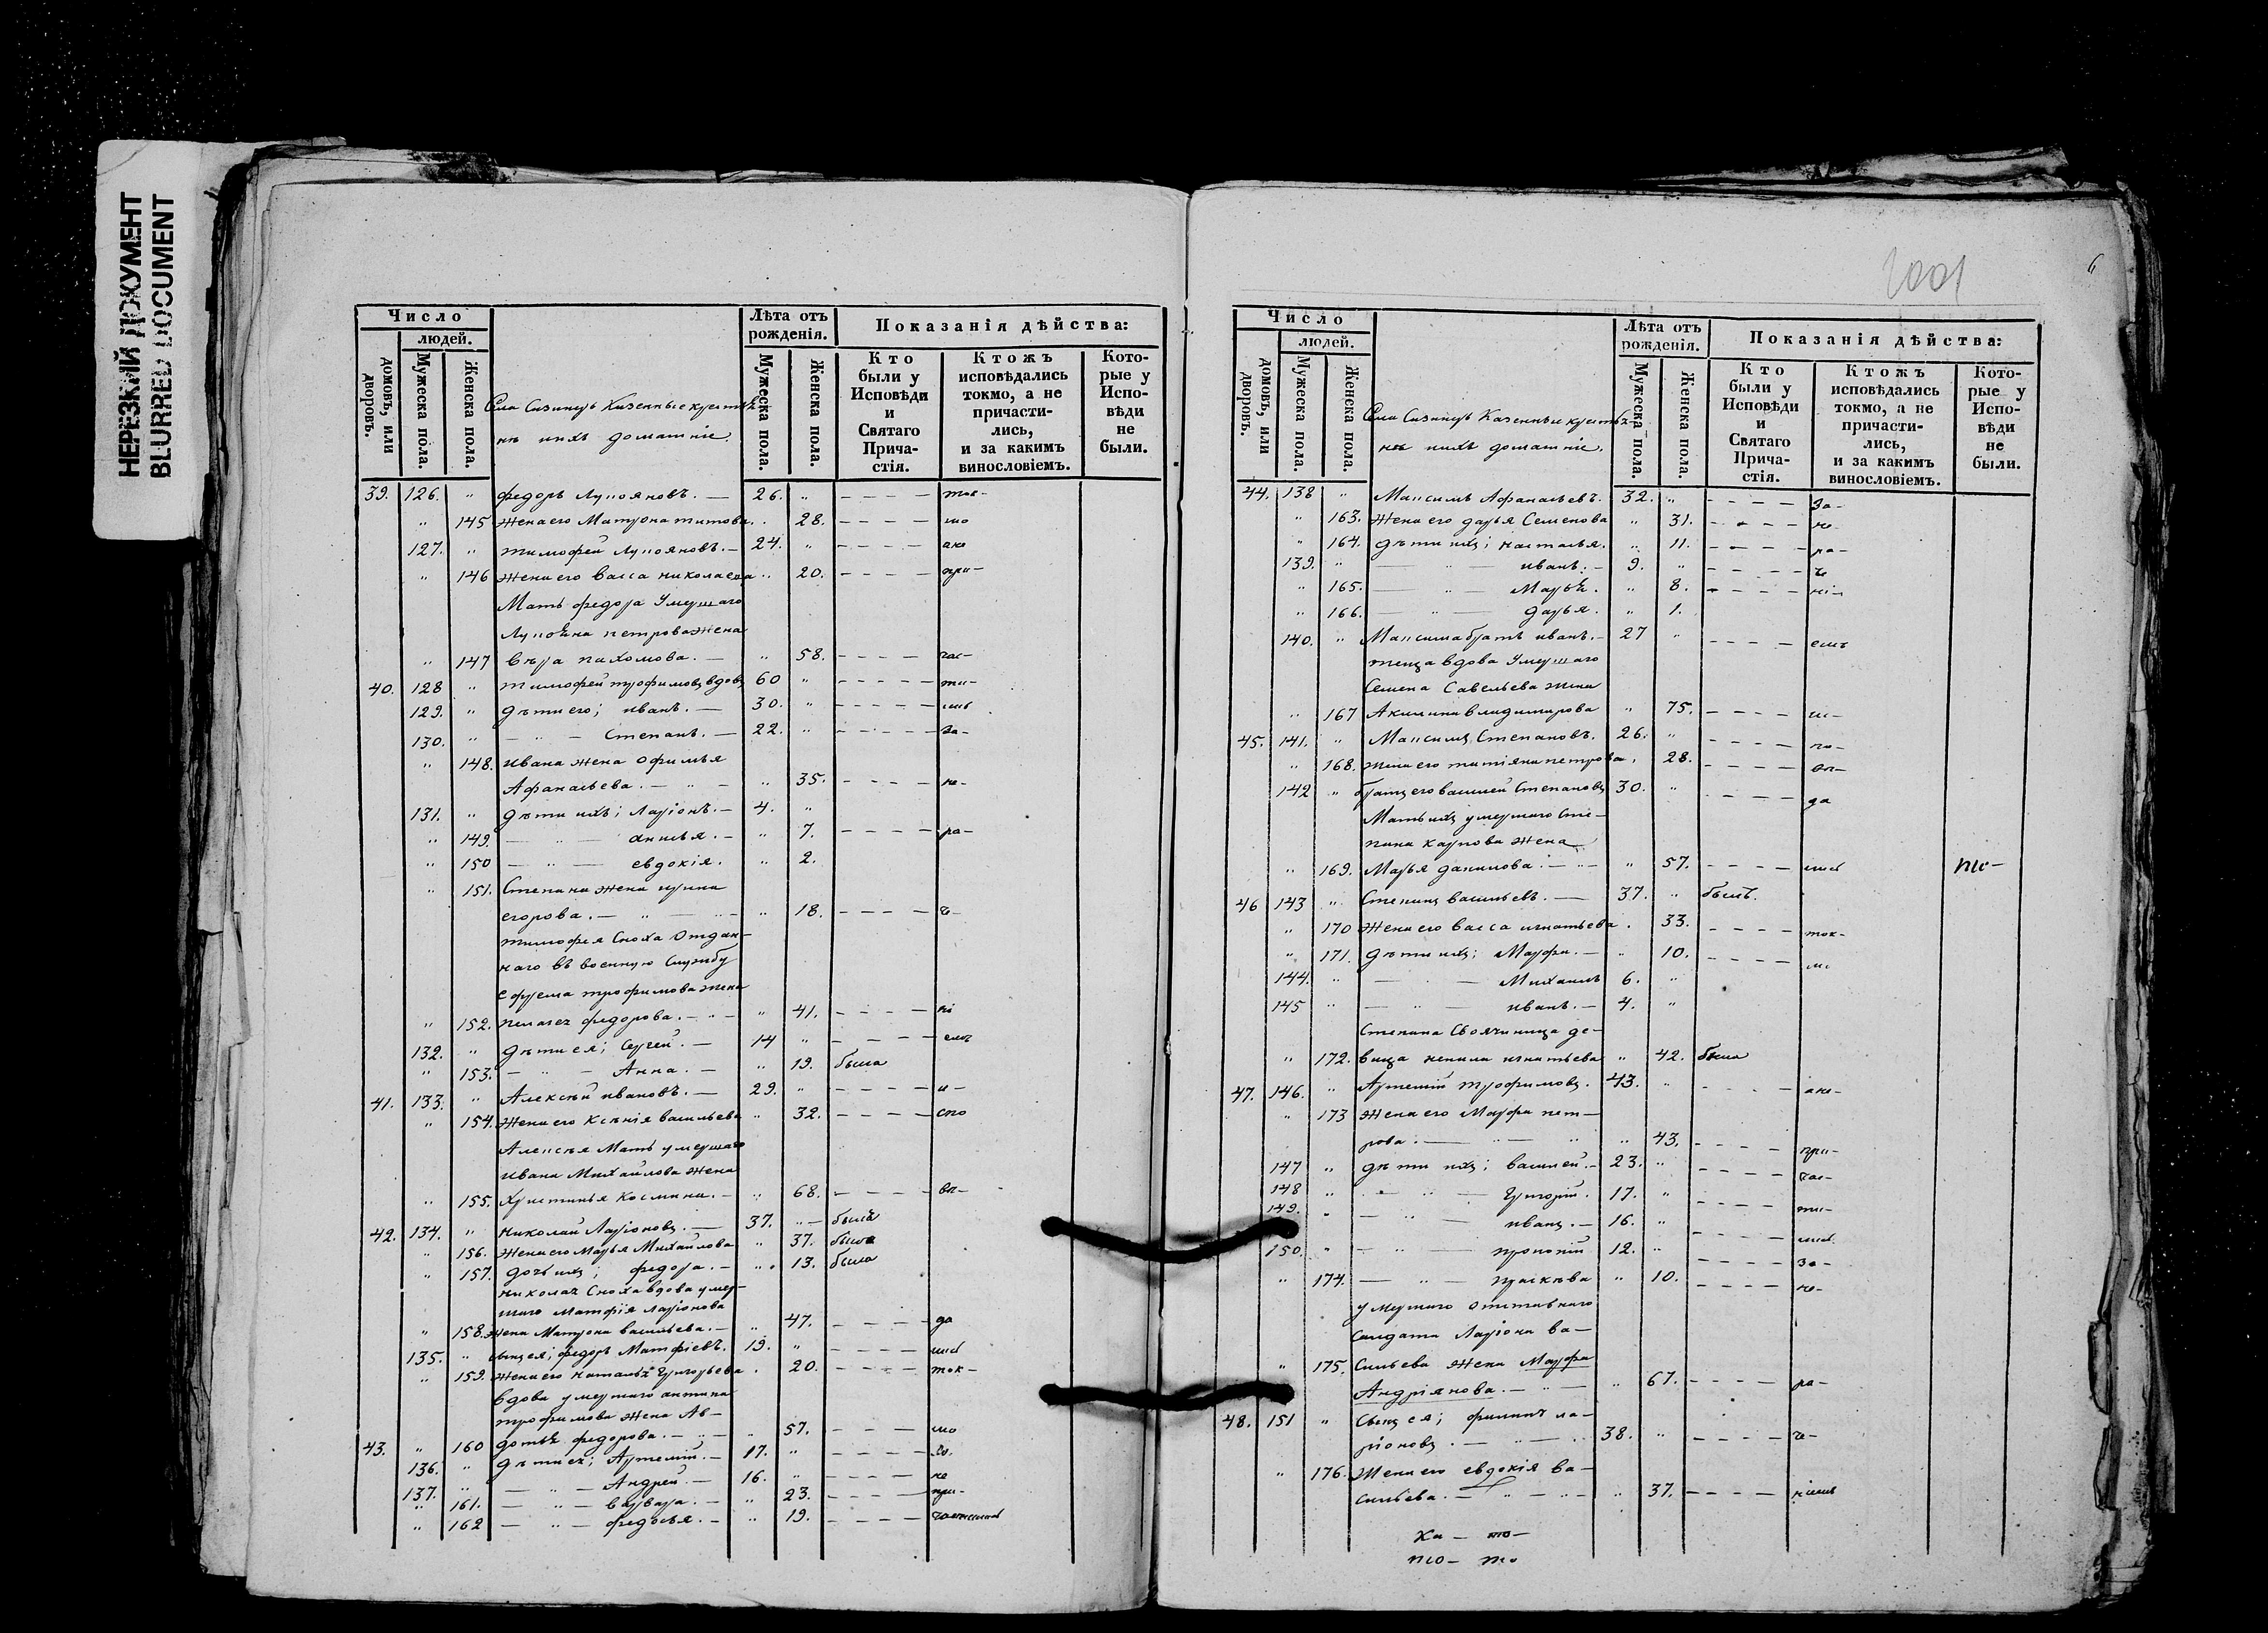 НЕРЕЗКИЙ ДОКУМЕНТ
BLURRED DOCUMENT
Число
людей.
домовъ, или дворовъ.
Мужеска пола.
Женска пола.
Лѣта отъ рожденія.
Мужеска пола.
Женска пола.
Показанія дѣйства:
Кто были у Исповѣди и Святаго Прича-стія.
Ктожъ исповѣдались токмо, а не причасти-лись, и за какимъ винословіемъ.
Кото-рые у Испо-вѣди не были.
нѣ ихъ домашніе.
39. 126. " федоръ Лупояновъ. — 26. " – – – – ток-
" 145 жена его Матрона титова. " 28. – – – – мо
127. " тимофей Лупояновъ. — 24. " – – – –
" 146 жена его васса николаева " 20. – – – – при-
Мать федора Умершаго
петрова жена
" 147 вѣра пахомова. — " 58. – – – – час-
40. 128 " тимофей трофимовъ вдовъ 60 " – – – – ти-
129. " дѣти его; иванъ. — 30. " – – – –
130. " — " — Степанъ. — 22. " – – – – За-
" 148. ивана жена офимья
Афанасьева. — " — " 35. – – – – не-
131. " дѣти ихъ; Ларіонъ. — 4. "
" 149. — " — анисья. — " 7. – – – – ра-
" 150 — " — евдокія. " 2.
" 151. Степана жена ирина
егорова. — " — " 18. – – – – ч-
тимофея Сноха Отдан-
наго въ военную Службу
ефрема трофимова жена
" 152. федорова. — " 41. – – – – ні
132. " дѣти ея; Сергей. — 14 " – – – – емъ
" 153. — " — Анна. — " 19. была
41. 133. " Алексѣй ивановъ. — 29. " – – – – и-
" 154. жена его Ксенія васильева " 32. – – – – спо
Алексѣя Мать умершаго
ивана Михайлова жена
" 155. Христинья Космина. — " 68. – – – – вѣ-
42. 134. " николай Ларіоновъ. — 37. " – былъ
" 156. жена его Марья Михайлова " 37. была
" 157. дочь ихъ; федора. — " 13. была
николая Сноха вдова умер-
шаго Матфія ларіонова
" 158. жена Матрона васильева. — " 47. – – – – да
135. " сынъ ея; федоръ Матфіевъ. 19. " – – – –
" 159. жена его наталья Григорьева " 20. – – – – ток-
вдова умершаго антипа
трофимова жена Ав-
43. " 160 дотья федорова. — " 57. – – – – мо
136. " дѣти ея; Артемій. — 17. " – – – –
137. " — " — Андрей. — 16. " – – – – не
" 161. — " — варвара. — " 23. – – – – при-
" 162 — " — федосья. — " 19. – – – –
6
Число
людей.
домовъ, или дворовъ.
Мужеска пола.
Женска пола.
Лѣта отъ рожденія.
Мужеска пола.
Женска пола.
Показанія дѣйства:
Кто были у Исповѣди и Святаго Прича-стія.
Ктожъ исповѣдались токмо, а не причасти-лись, и за какимъ винословіемъ.
Кото-рые у Испо-вѣди не были.
ихъ домашніе.
44. 138 " Максимъ Афанасьевъ. 32. " – – – – За-
" 163. жена его дарья Семенова " 31. – – – – не-
" 164. дѣти ихъ; настасья. " 11. – – – – ра-
139. " — " — иванъ. — 9. " – – – – ч
" 165. — " — Марья. " 8. – – – – ні-
" 166. — " — дарья. " 1.
140. " Максима братъ иванъ. — 27 " – – – – емъ
теща вдова Умершаго
Семена Савельева жена
" 167 Акилина владимирова " 75. – – – – ис-
45. 141. " Максимъ Степановъ. 26. " – – – – по-
" 168. жена его татіяна петрова. 28. – – – – вѣ-
142 " братъ его василей Степановъ 30. " – – – – да
Мать ихъ умершаго Сте-
пана Карпова жена
" 169. Марья данилова. — " — " 57. – – – –
46 143 " Степанъ васильевъ. — 37. " былъ.
" 170 жена его васса игнатьева " 33. – – – – ток-
" 171. дѣти ихъ; Марфа. — " 10. – – – –
144. " — " — Михаилъ 6. "
145 " — " — иванъ. — 4. "
Степана Своячиница де-
" 172. вица ненила игнатьева " 42. была
47. 146. " Артемій Трофимовъ. 43. " – – – –
" 173 жена его Марфа пет-
рова. — " — " 43. – – – – при-
147 " дѣти ихъ; василей. — 23. " – – – – час-
148 " — " — Григорій. 17. " – – – – ти-
149. " — " — иванъ. — 16. " – – – –
150. " — " — прокопій 12. " – – – – За-
" 174. — " — праскева " 10. – – – – не-
умершаго отставнаго
Салдата Ларіона ва-
" 175. сильева жена Марфа
Андріянова. — " — " 67. – – – – ра-
48. 151 " Сынъ ея; филипъ ла-
ріоновъ. — " — 38. " – – – – че-
" 176. жена его евдокія ва-
сильева. — " — " 37. – – – –